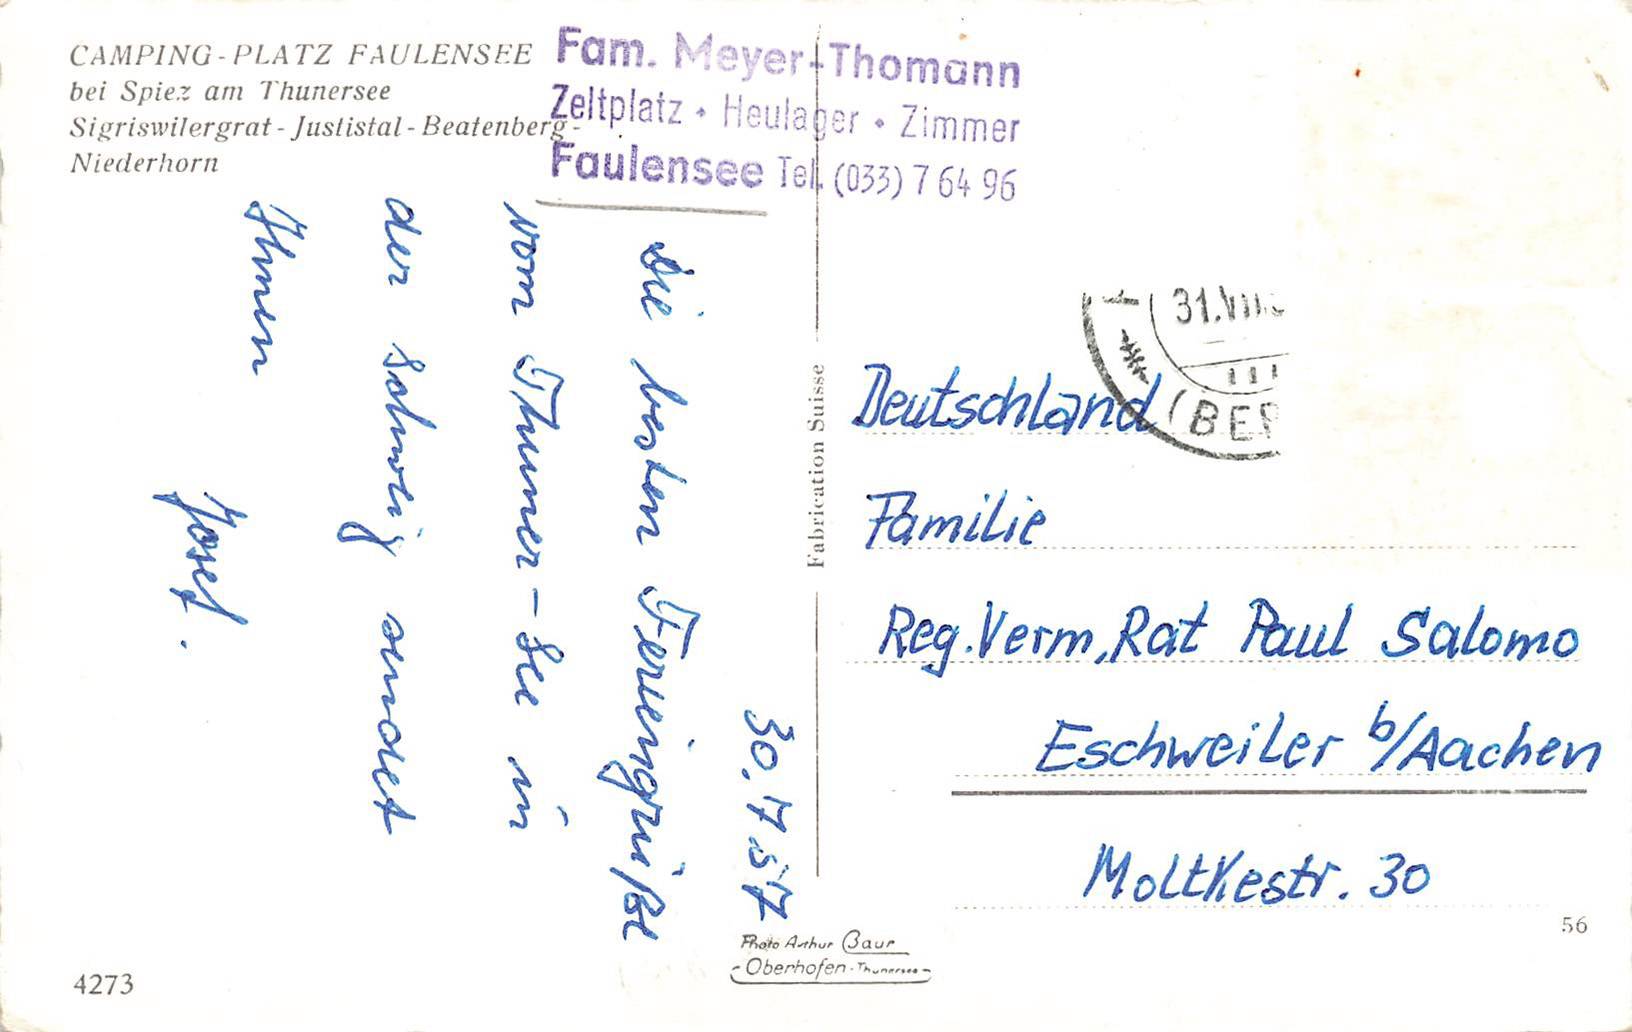 CAMPING-PLATZ FAULENSEE
bei Spiez am Thunersee
Sigriswilergrat - Justistal - Beatenberg -
Niederhorn
Fam. Meyer-Thomann
Zeltplatz • Heulager • Zimmer
Faulensee Tel. (033) 7 64 96
30.7.57
Die besten Feriengrüße
vom Thuner-See in
der Schweiz sendet
Ihnen
Josef.
Fabrication Suisse
31.VII.
(BER
Deutschland
Familie
Reg.Verm.Rat Paul Salomo
Eschweiler b/Aachen
Moltkestr. 30
56
Photo Arthur Baur
Oberhofen-Thunersee
4273